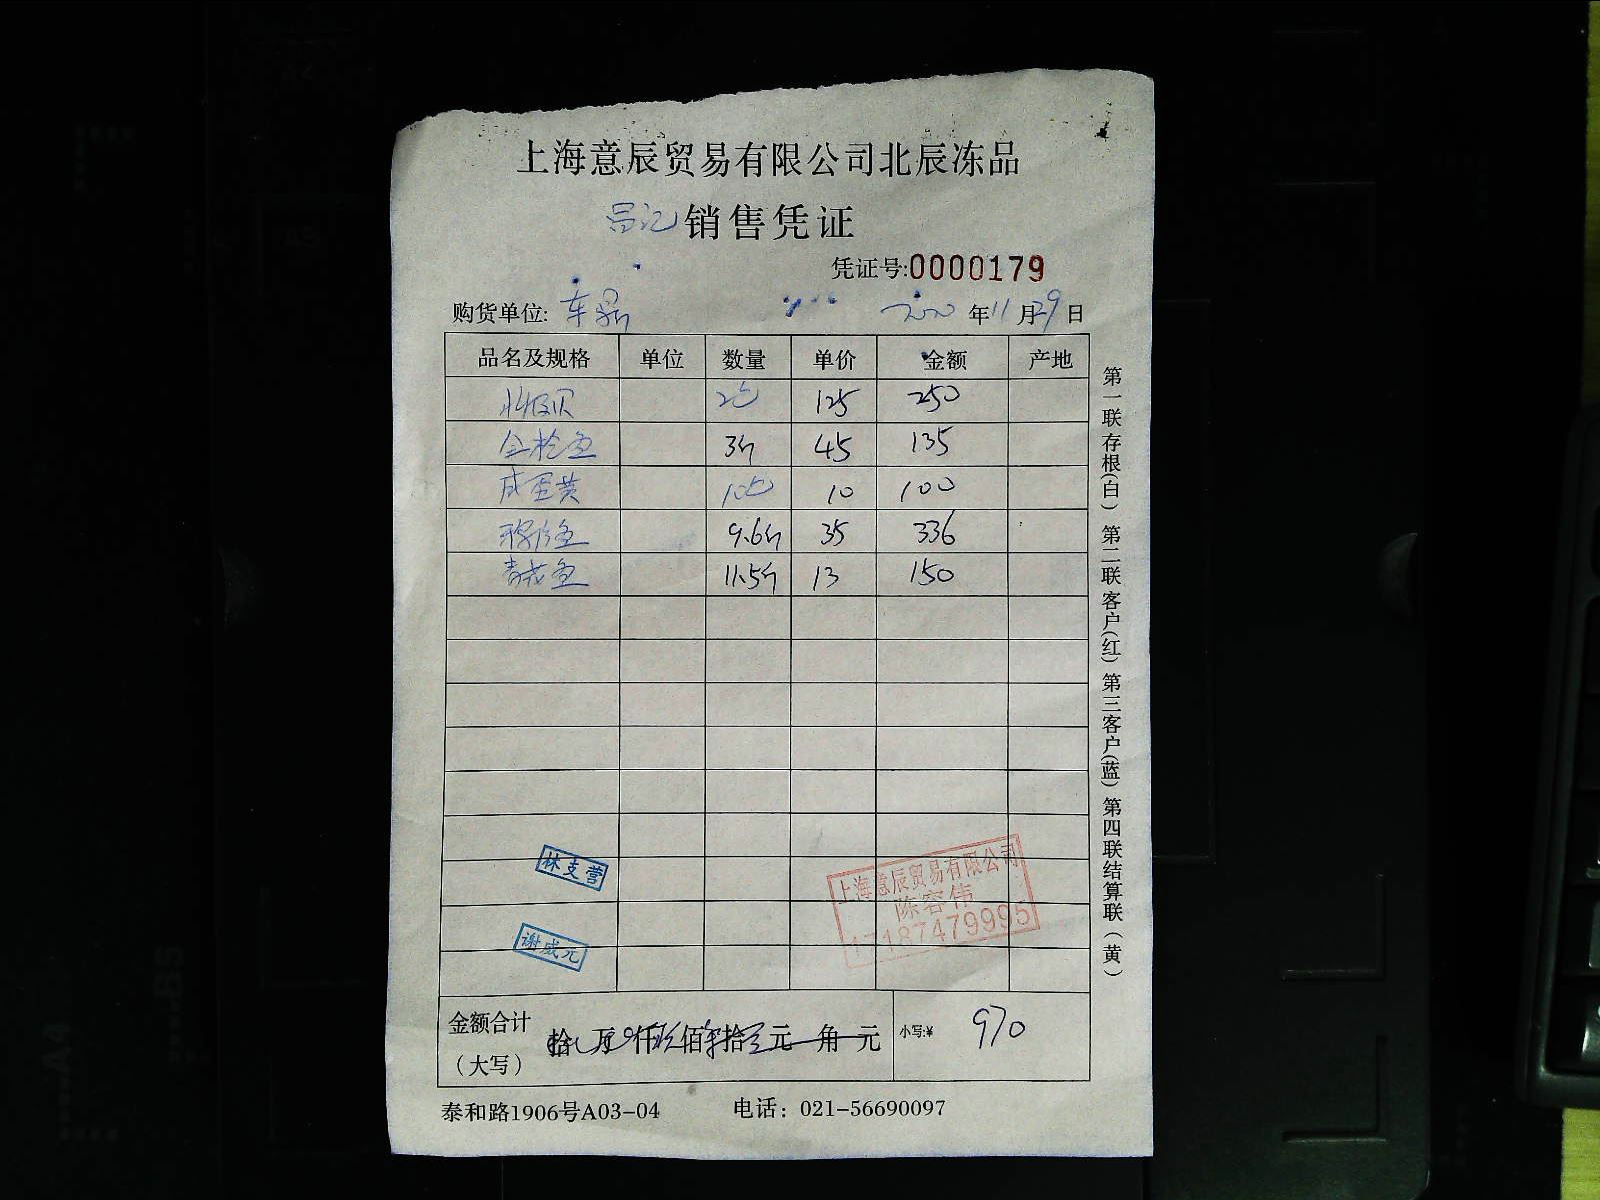 上海意辰贸易有限公司北辰冻品
昌记 销售凭证
凭证号:0000179
购货单位: 年11月29日
品名及规格 单位 数量 单价 金额 产地
北极贝 2包 125 250
金枪鱼 3斤 45 135
咸蛋黄 10包 10 100
鱼 9.6斤 35 336
青花鱼 11.5斤 13 150
林支营
谢咸元
上海意辰贸易有限公司
陈容伟
17187479995
金额合计（大写） 拾 万 仟 佰 拾 元 角 元 小写:¥ 970
泰和路1906号A03-04 电话：021-56690097
第一联存根(白) 第二联客户(红) 第三客户(蓝) 第四联结算联（黄）